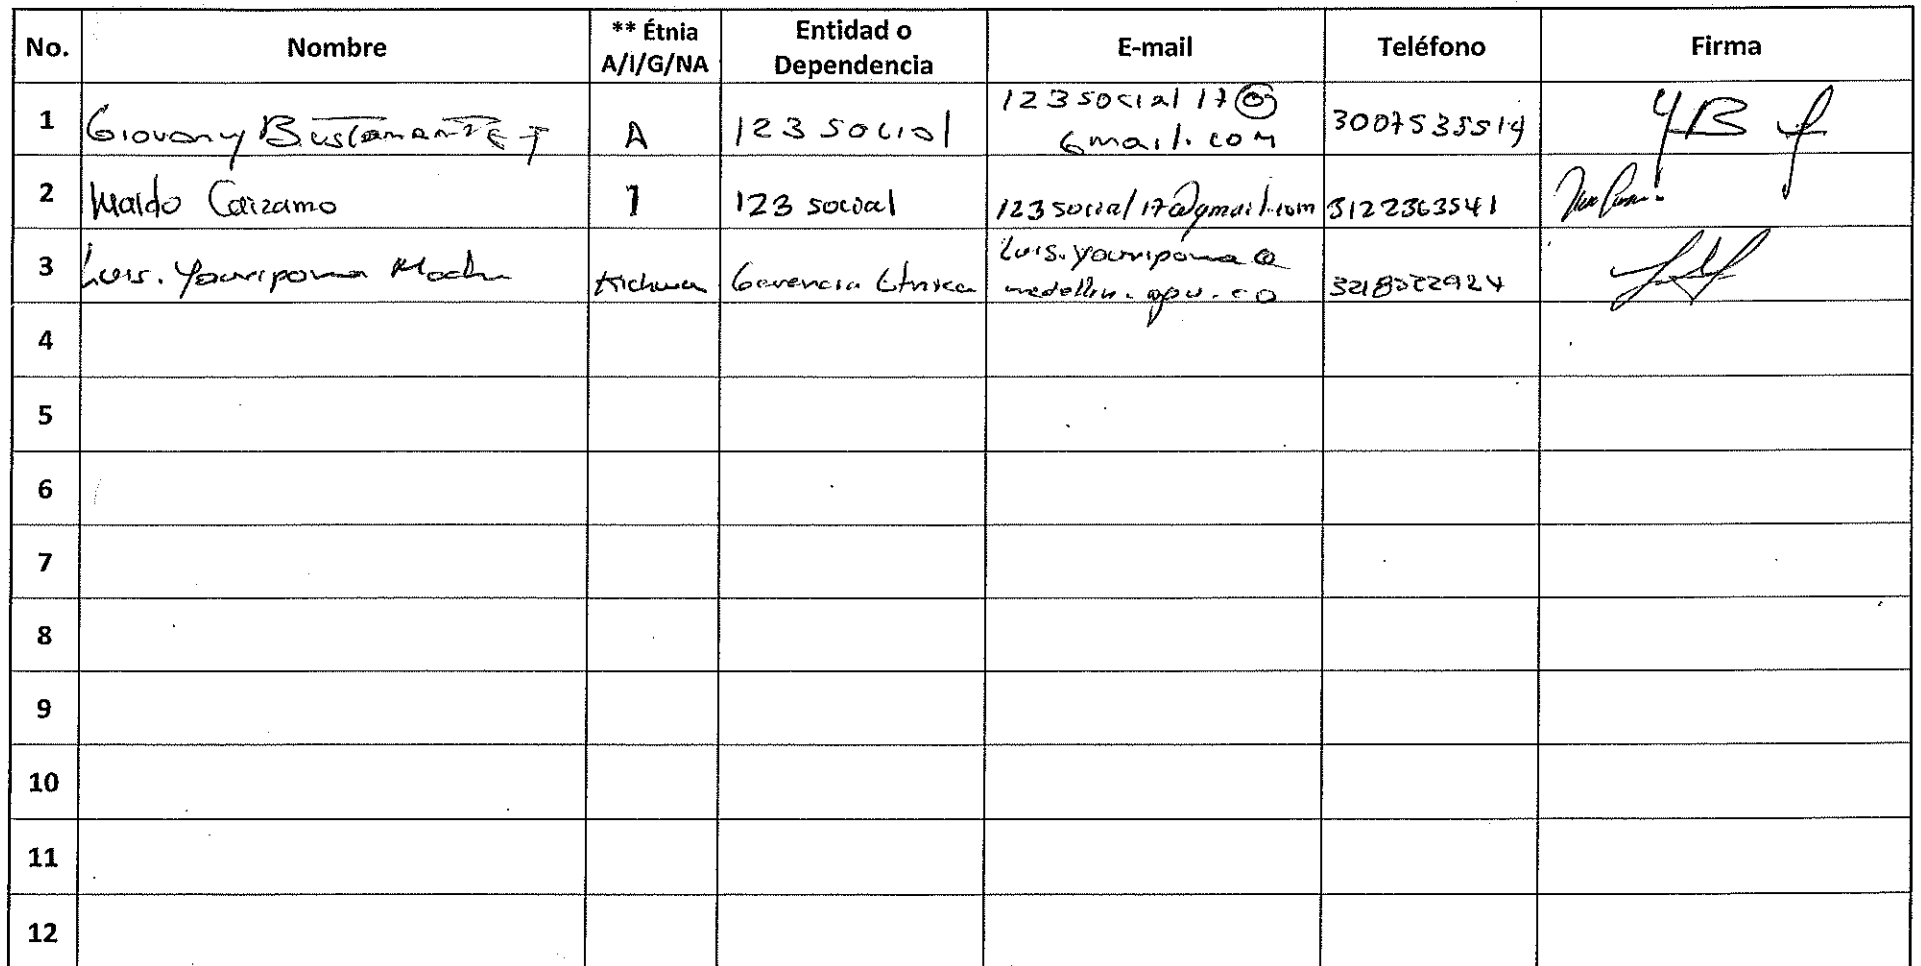 No. Nombre ** Étnia A/I/G/NA Entidad o Dependencia E-mail Teléfono Firma
1 Giovany Bustamante T A 123 social 123social17@ Gmail.com 3007535514
2 Waldo Caizamo I 123 social 123social17@gmail.com 3122363541
3 Luis. Kichua Gerencia Etnica medellin.gov.co
4
5
6
7
8
9
10
11
12